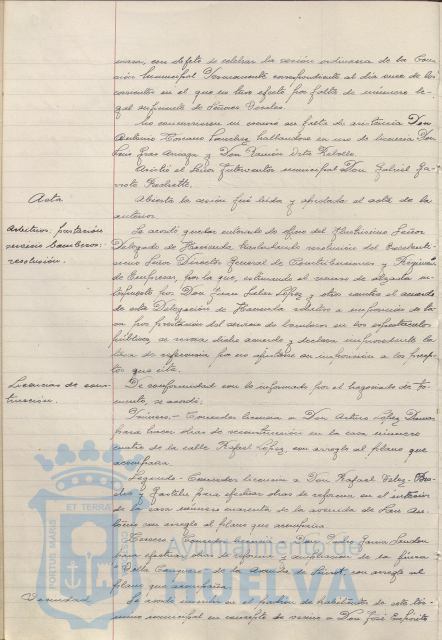 con objeto de celebrar la sesión ordinaria de la Comi-
sión Municipal Permanente correspondiente al día once de los
corrientes en el que no tuvo efecto por falta de número le-
gal suficiente de Señores Vocales.
No concurrieron ni excusaron su falta de asistencia Don
Antonio Toscano Sánchez hallándose en uso de licencia Don
y Don Ramón
Asistió el Señor Interventor municipal Don Gabriel Ga-
Acta
Abierta la sesión fué leída y aprobada el acta de la
anterior.
Arbitrios: prestación
servicio bomberos:
resolución.
Se acordó quedar enterado de oficio del Ilustrísimo Señor
Delegado de Hacienda trasladando resolución del Excelentí-
simo Señor Director General de Contribuciones y Régimen
de Empresas, por la que, estimando el recurso de alzada in-
terpuesto por Don Juan López y otros contra el acuerdo
de esta Delegación de Hacienda relativo a imposición de ta-
sa por prestación del servicio de bomberos en los espectáculos
públicos, se revoca dicho acuerdo y declara improcedente la
tasa de referencia por no ajustarse su imposición a los precep-
tos que cita.
Licencias de cons-
trucción.
De conformidad con lo informado por el Negociado de Fo-
mento, se acordó:
Primero.- Conceder licencia a Don Arturo López Damas
para hacer obras de reconstrucción en la casa número
cuatro de la calle Rafael López, con arreglo al plano que
acompaña.
Segundo.- Conceder licencia a Don Rafael
y para efectuar obras de reforma en el interior
de la casa número cuarenta de la avenida de San An-
tonio con arreglo al plano que acompaña.
Tercero.- Conceder licencia a Don Pedro García
para efectuar obras de reforma y ampliación de la finca
de la con arreglo al
plano que acompaña.
Vecindad.
Se acordó inscribir en el padrón de habitantes de este tér-
mino municipal en concepto de vecino a Don José
PORTUS MARIS
ET TERRAE
Ayuntamiento de
HUELVA